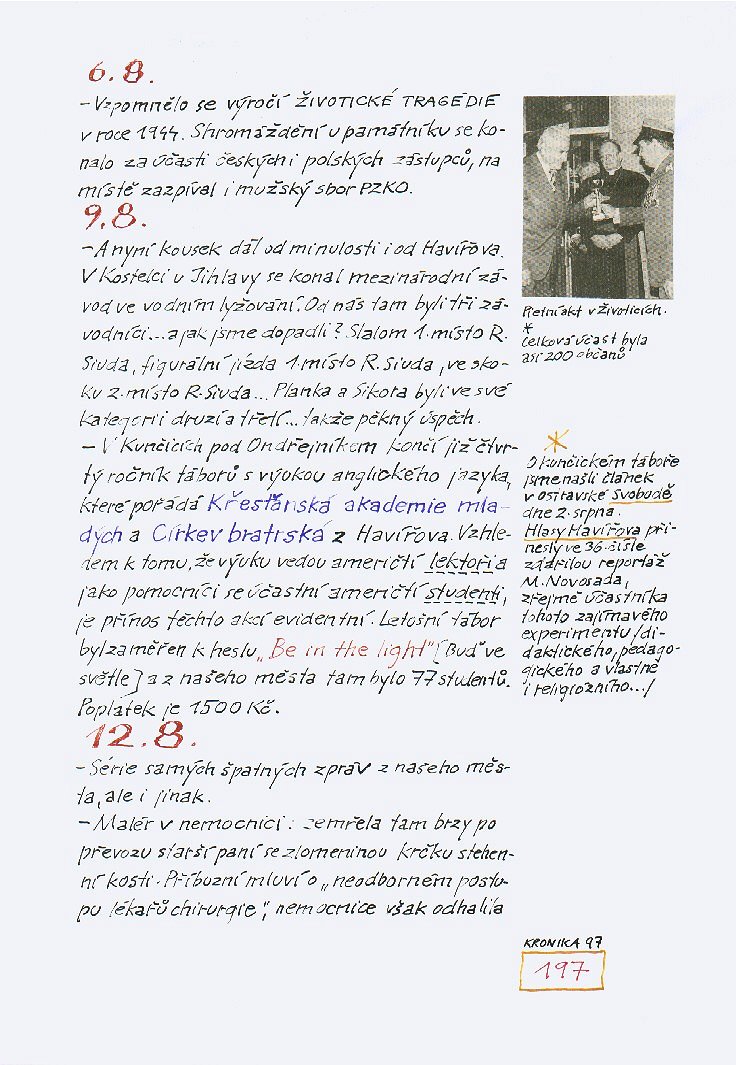 6.8.
– Vzpomnělo se výročí ŽIVOTICKÉ TRAGÉDIE
v roce 1944. Shromáždění u památníku se ko-
nalo za účasti českých i polských zástupců, na
místě zazpíval i mužský sbor PZKO.
9.8.
– A nyní kousek dál od minulosti i od Havířova.
V Kostelci u Jihlavy se konal mezinárodní zá-
vod ve vodním lyžování. Od nás tam byli tři zá-
vodníci... a jak jsme dopadli? Slalom 1. místo R.
Siuda, figurální jízda 1. místo R. Siuda, ve sko-
ku 2. místo R. Siuda... Planka a Sikora byli ve své
kategorii druzí a třetí... takže pěkný úspěch.
– V Kunčicích pod Ondřejníkem končí již čtvr-
tý ročník táborů s výukou anglického jazyka,
které pořádá Křesťanská akademie mla-
dých a Církev bratrská z Havířova. Vzhle-
dem k tomu, že výuku vedou američtí lektoři a
jako pomocníci se účastní američtí studenti,
je přínos těchto akcí evidentní. Letošní tábor
byl zaměřen k heslu „Be in the light" [Buď ve
světle] a z našeho města tam bylo 77 studentů.
Poplatek je 1500 Kč.
12.8.
– Série samých špatných zpráv z našeho měs-
ta, ale i jinak.
– Malér v nemocnici: zemřela tam brzy po
převozu starší paní se zlomeninou krčku stehen-
ní kosti. Příbuzní mluví o „neodborném postu-
pu lékařů chirurgie", nemocnice však odhalila
Pietní akt v Životicích.
*
Celková účast byla
asi 200 občanů
*
O kunčickém táboře
jsme našli článek
v ostravské Svobodě
dne 2. srpna.
Hlasy Havířova při-
nesly ve 36. čísle
zdařilou reportáž
M. Novosada,
zřejmě účastníka
tohoto zajímavého
experimentu /di-
daktického, pedago-
gického a vlastně
i religiózního.../
KRONIKA 97
197